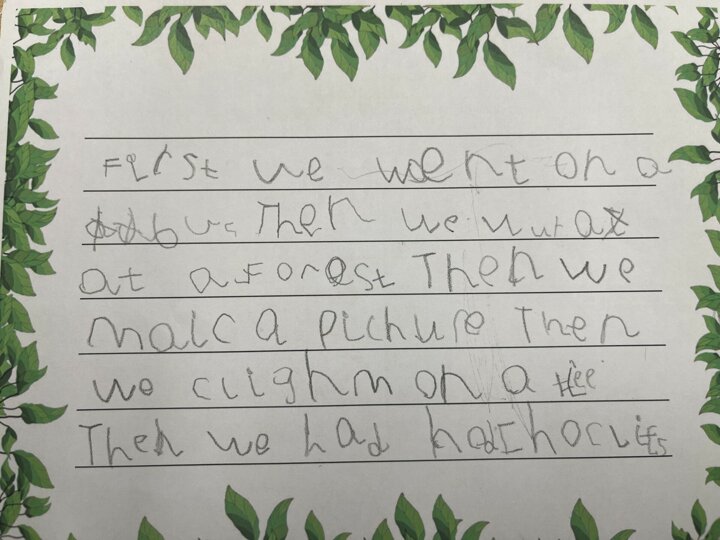 First we went on a
bus Then we wur at
at a Forest Then we
malc a pichure Then
we clighm on a tree
Then we had